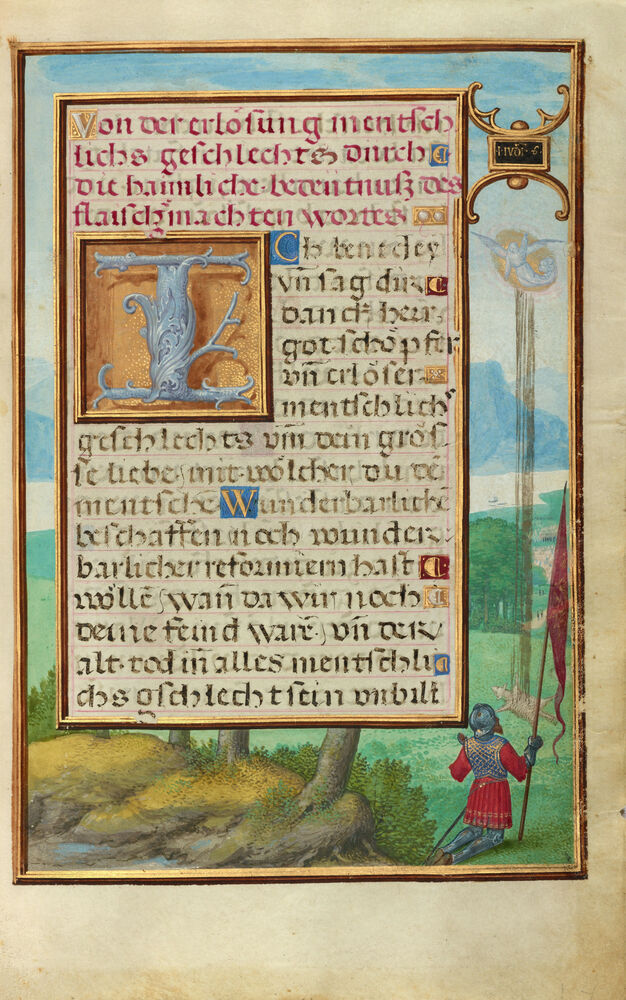 Von der erlösung mentsch
lichs geschlechts durch
die haimliche bedeütnuß des
flaischgmachten wortes
ICh benedey
vn̄ sag dir
danck herr
got schöpfer
vn̄ erlöser
mentschlich
geschlechts vm̄ dein gros
se liebe, mit wölcher du dē
mentsche Wunderbarliche
beschaffen, noch wunder
barlicher reformiern hast
wöllē, wan̄ da wir noch
deine feind warē, vn̄ der
alt tod in̄ alles mentschli
chs gschlecht sein vnbilt
IVDI 6